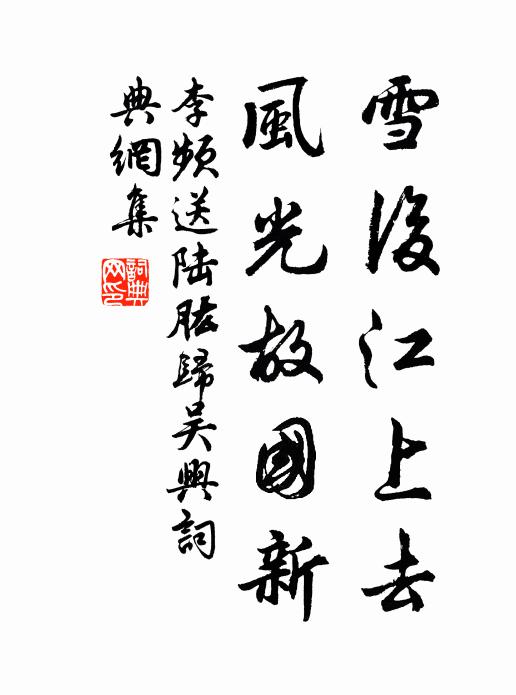 雪後江上去
風光故國新
李頻送陸肱歸吳興詞
典網集
詞典
网印